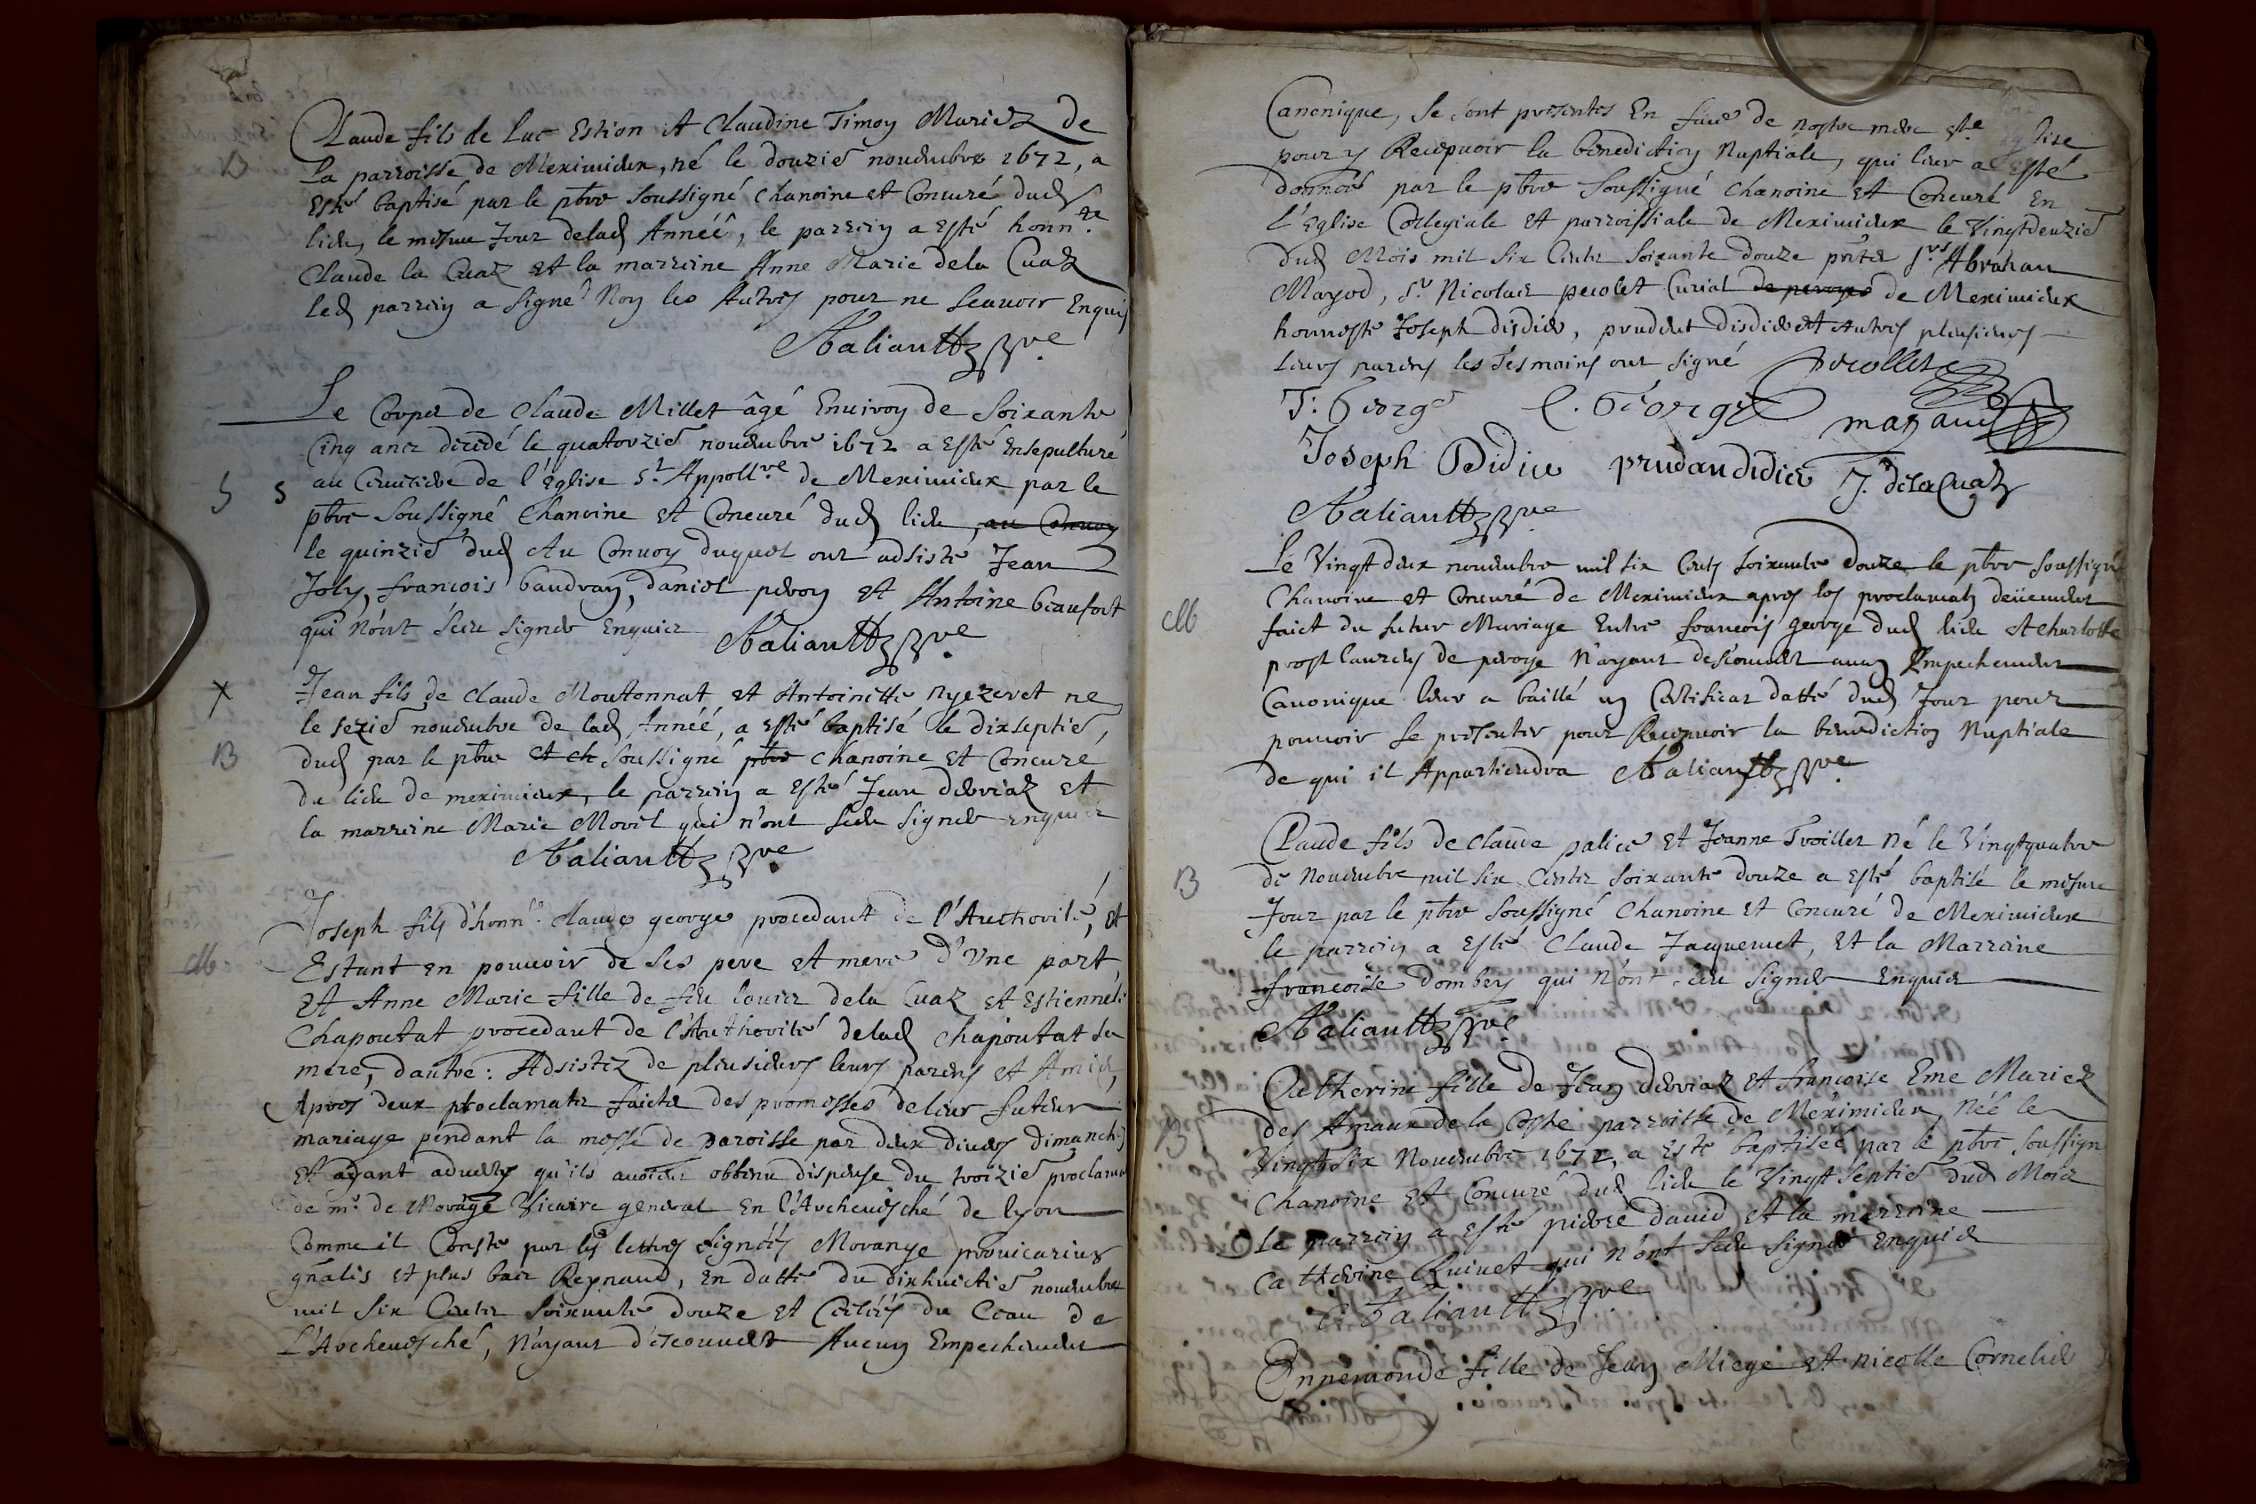 Claude fils de Luc Estion et Claudine Timoy Mariez de
B
la parroisse de Meximieux, né le douzie novembre 1672, a
esté baptisé par le pbre soussigné chanoine et Concuré dud
lieu, le mesme jour delad Année, le parrein a esté honn.te
Claude la Cuaz et la marreine Anne Marie dela Cuaz
led parrein a signé Non les Autres pour ne scauoir Enquis
Aaliaultz pbre
Le Corps de Claude Millet âgé Enuiron de Soixante
Cinq ans décédé le quatorzie nouembre 1672 a esté Ensepulturé
S S au Cimitiere de l'Eglise St Appollre de Meximieux par le
pbre Soussigné Chanoine et Concuré dud lieu, au Conuoy
le quinzie dud Au Conuoy duquel ont adsisté Jean
Joly, françois baudran, daniel peron et Antoine beaufort
qui n'ont sceu signer Enquis Aaliaultz pbre
X
Jean fils de Claude Moutonnat et Antoinette nyezeret ne
le sezie nouembre de lad Année, a esté baptisé le dixseptie,
B
dud par le pbre et ch soussigné pbre chanoine et Concuré
du lieu de meximieux, le parrein a esté Jean deuriaz et
la marreine Marie Morel qui n'ont sceu signer enquis
Aaliaultz pbre
Joseph fils d'honn.te claude george procedant de l'Authorité, et
M
Estant en pouuoir de ses pere et mere d'Vne part,
et Anne Marie fille de feu Louis dela Cuaz et Estiennette
Chapoutat procedant de l'Authorité delad chapoutat sa
mere, dautre: Adsistez de plusieurs leurs parens et Amis,
Apres deux proclamatns faictes des promesses deleur futeur
mariage pendant la messe de paroisse par deux diuers dimanches
et ayant aduerty qu'ils auoient obtenu dispense du troizie proclamat
de mr de Morange Vicaire general En l'Archeuesché de lyon
Comme il Conste par les lettres signées Morange prouicarius
gnalis et plus bas Reynaud, en datte du dixhuictie nouembre
mil six Cents soixante douze et Cellées du Ceau de
L'Archeuesché, N'ayant d'escouuert Aucun Empechement
Canonique, se sont presentes En face de nostre mere ste Eglise
pour y Recepuoir la benediction Nuptiale, qui leur a esté
donnée par le pbre soussigné chanoine et Concuré En
l'Eglise Collegiale et parroissiale de Meximieux le Vingtdeuzie
dud Mois mil six Cents soixante douze pnts Srs Abraham
Mayod, Sr Nicolas pecolet Curial de peroges de Meximieux
honneste Joseph disdier, prudent disdier et Autres plusieurs
leurs parens les tesmoins ont signé pecollet
J: George C. George mayaud
Joseph Didier prudan didier J. dela Cuaz
Aaliaultz pbre
Le Vingt deux nouembre mil six Cents soixante douze le pbre soussigné
M
Chanoine et Concuré de Meximieux apres les proclamatns deüement
faict du futur Mariage Entre françois george dud lieu et charlotte
prost Laurens de peroge N'ayant descouuert aucun Empechement
Canonique leur a baillé un Certificat datté dud Jour pour
pouuoir se presenter pour Recepuoir la benediction Nuptiale
de qui il Appartiendra Aaliaultz pbre
Claude fils de Claude palice et Jeanne Troillet Né le Vingtquatre
B
de Nouembre mil six Cents soixante douze a esté baptisé le mesme
Jour par le pbre soussigné Chanoine et Concuré de Meximieux
le parrein a esté Claude Jacquemet, et la Marreine
françoise Dombey qui n'ont sceu signer Enquis
Aaliaultz pbre
Catherine fille de Jean deuriaz et françoise Eme Mariez
B
des Amaux de la Coste parroisse de Meximieux, Née le
Vingt six Nouembre 1672, a esté baptisée par le pbre soussigné
Chanoine et Concuré dud lieu le Vingt Septie dud Mois
le parrein a esté pierre dauid et la marreine
Catherine Quinet qui n'ont sceu signer Enquis
Aaliaultz pbre
Ennemonde fille de Jean Miege et nicolle Cornelier